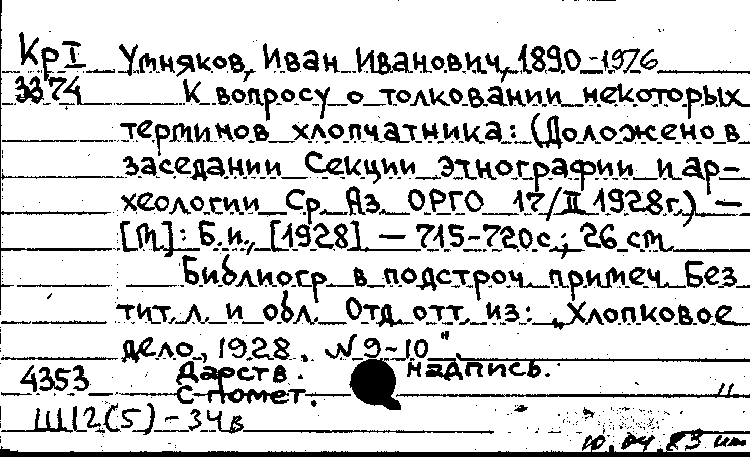 КрI Умняков, Иван Иванович, 1890-1976
3374 К вопросу о толковании некоторых
терминов хлопчатника: (Доложено в
заседании Секции этнографии и ар-
хеологии Ср. Аз. ОРГО 17/II 1928г.) —
[Т.]: Б.и., [1928]. — 715-720с.; 26 см.
Библиогр. в подстроч. примеч. Без
тит. л. и обл. Отд. отт. из: „Хлопковое
дело, 1928, N 9-10".
4353 Дарств. надпись.
С помет.
Ш12(5)-34в
10.04.83